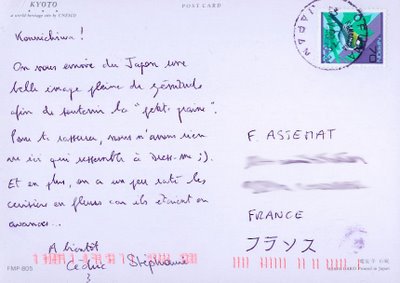 KYOTO
a world heritage site by UNESCO
POST CARD
Konnichiwa !
On vous envoie du Japon une
belle image pleine de
afin de soutenir la "petite graine".
Pour te rassurer, nous n'avons rien
vu ici qui ressemble à ;).
Et en plus, on a un peu raté les
cerisiers en fleurs car ils étaient en
avance...
A bientôt
Cédric Stéphanie
F. ASSEMAT
FRANCE
フランス
JAPAN
70
NIPPON
FMP-805
Printed in Japan